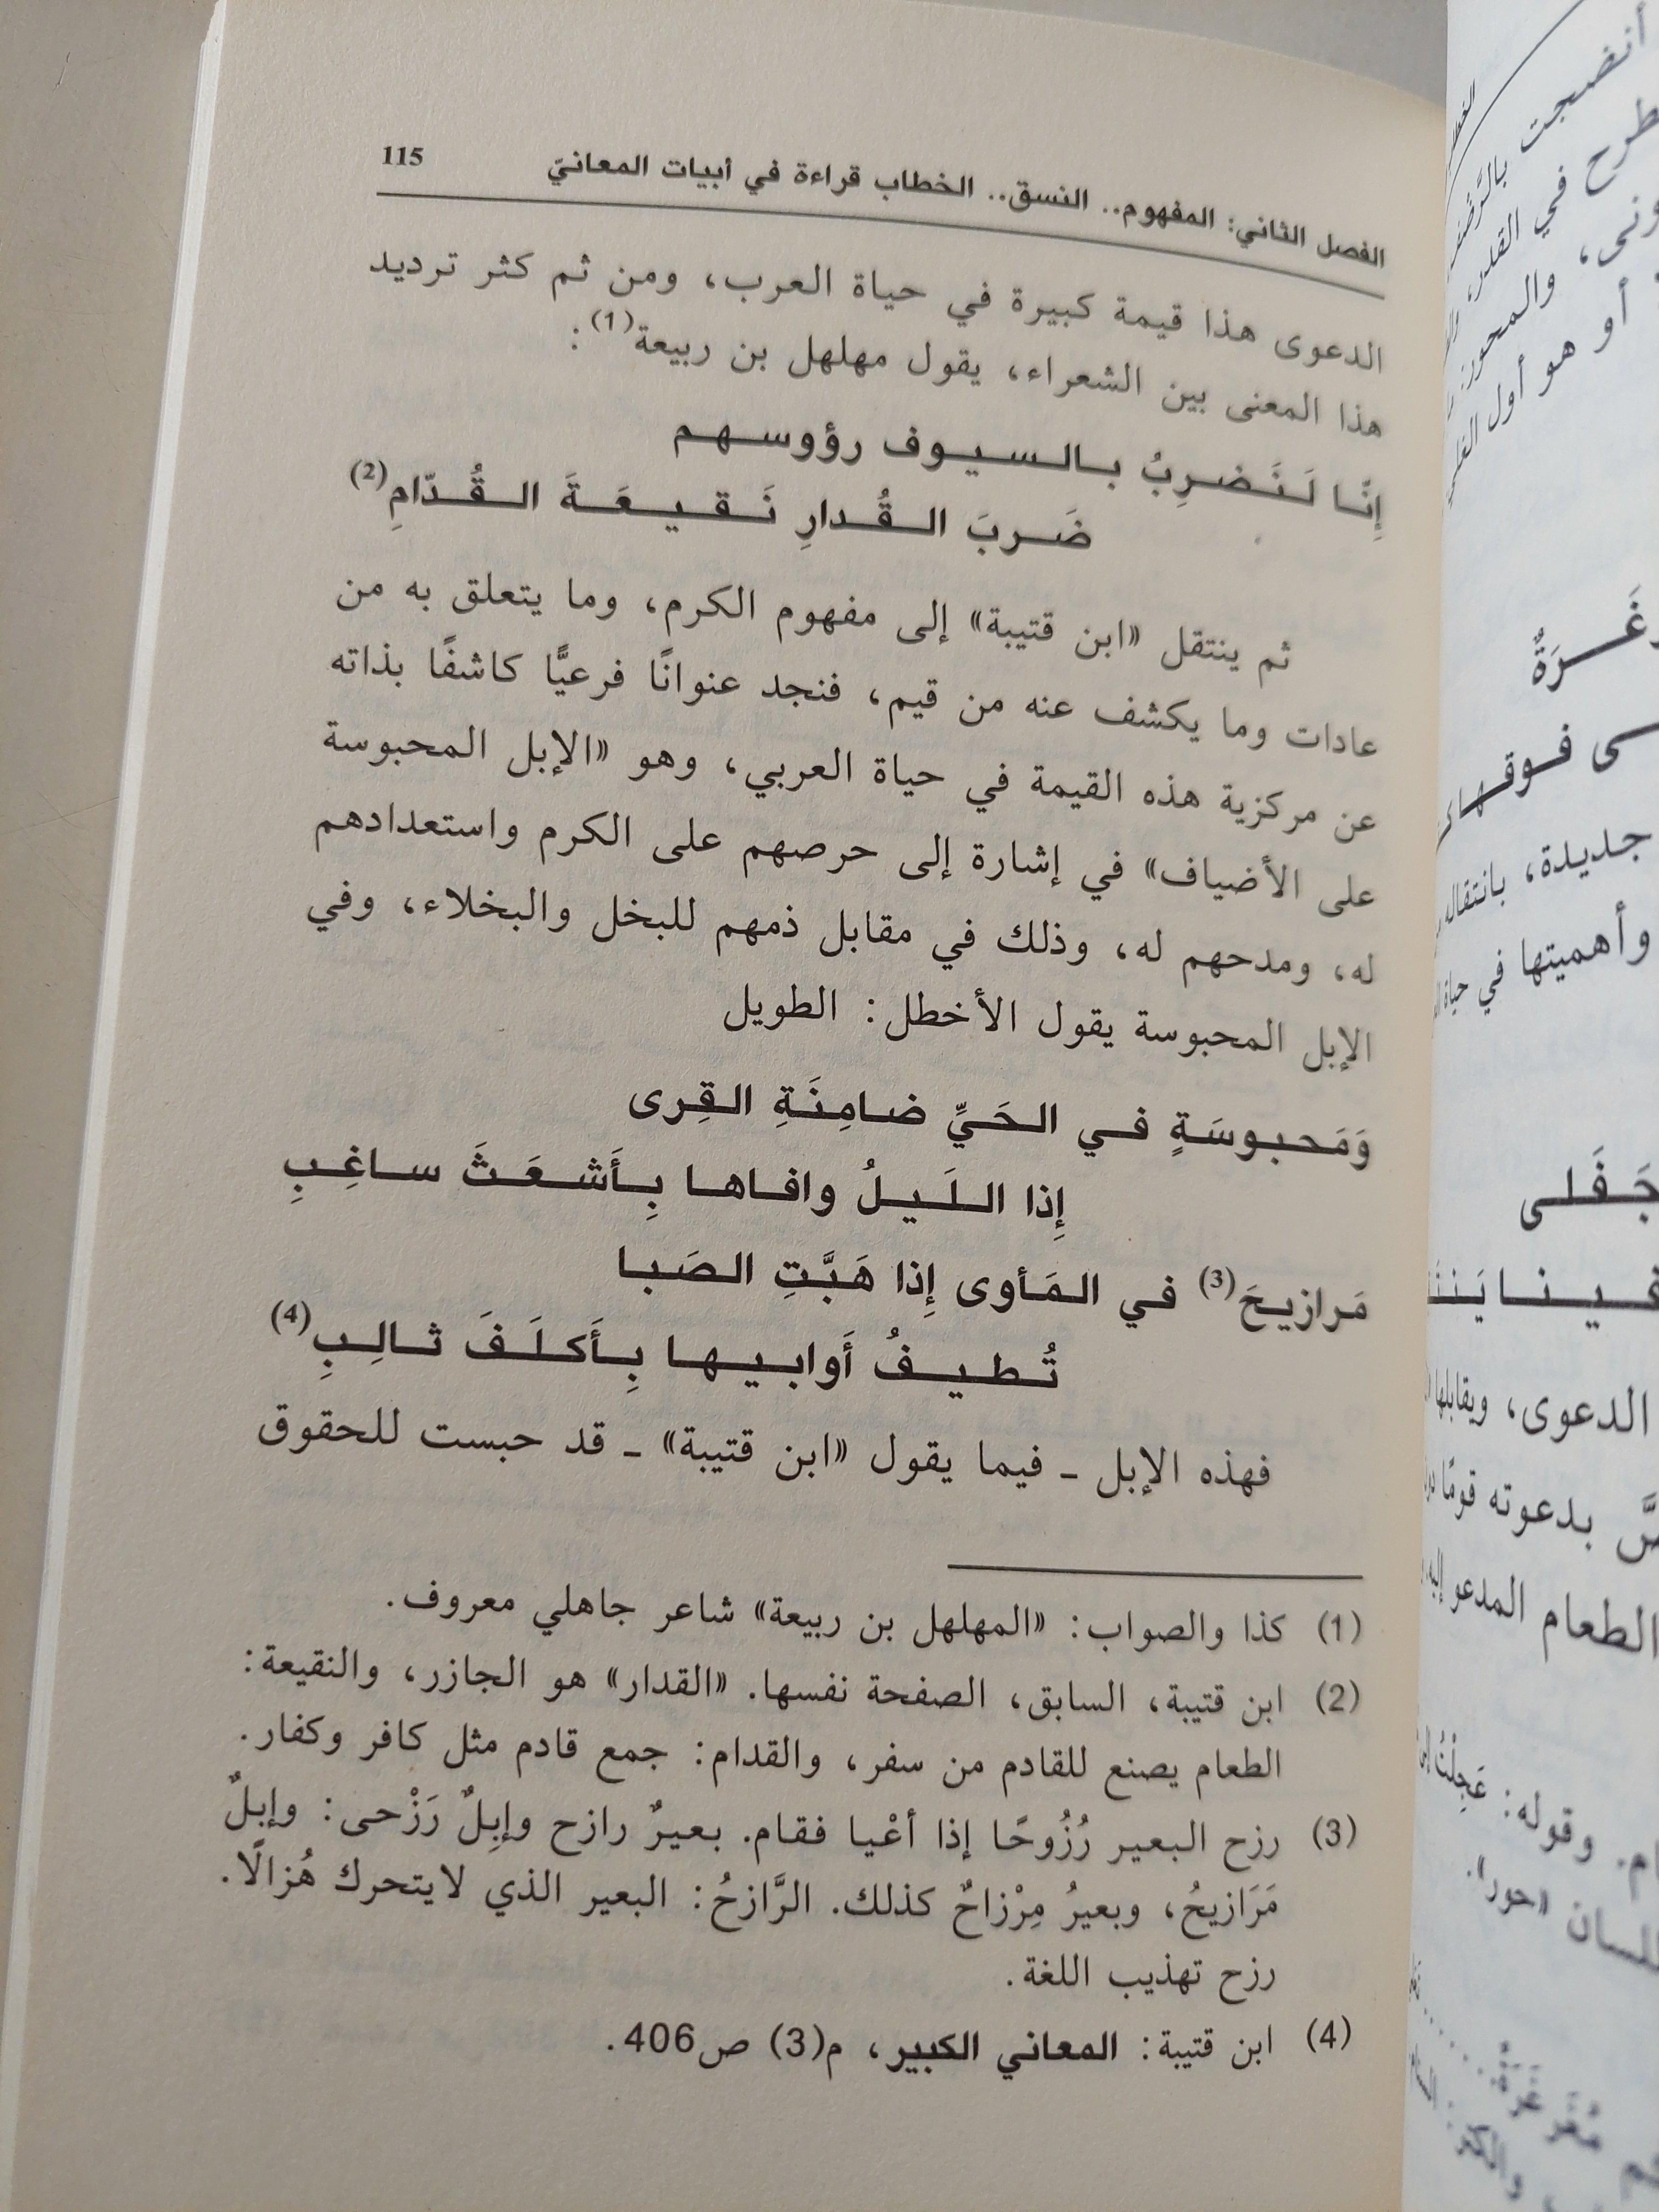 الفصل الثاني: المفهوم.. النسق.. الخطاب قراءة في أبيات المعانيّ 115
الدعوى هذا قيمة كبيرة في حياة العرب، ومن ثم كثر ترديد
هذا المعنى بين الشعراء، يقول مهلهل بن ربيعة(1):
إِنّا لَنَضرِبُ بالسيوف رؤوسهم
ضَربَ القُدارِ نَقيعَةَ القُدّامِ(2)
ثم ينتقل «ابن قتيبة» إلى مفهوم الكرم، وما يتعلق به من
عادات وما يكشف عنه من قيم، فنجد عنوانًا فرعيًّا كاشفًا بذاته
عن مركزية هذه القيمة في حياة العربي، وهو «الإبل المحبوسة
على الأضياف» في إشارة إلى حرصهم على الكرم واستعدادهم
له، ومدحهم له، وذلك في مقابل ذمهم للبخل والبخلاء، وفي
الإبل المحبوسة يقول الأخطل: الطويل
وَمَحبوسَةٍ في الحَيِّ ضامِنَةِ القِرى
إِذا اللَيلُ وافاها بِأَشعَثَ ساغِبِ
مَرازيحَ(3) في المَأوى إِذا هَبَّتِ الصَبا
تُطيفُ أَوابيها بِأَكلَفَ ثالِبِ(4)
فهذه الإبل ـ فيما يقول «ابن قتيبة» ـ قد حبست للحقوق
(1) كذا والصواب: «المهلهل بن ربيعة» شاعر جاهلي معروف.
(2) ابن قتيبة، السابق، الصفحة نفسها. «القدار» هو الجازر، والنقيعة:
الطعام يصنع للقادم من سفر، والقدام: جمع قادم مثل كافر وكفار.
(3) رزح البعير رُزُوحًا إذا أعْيا فقام. بعيرٌ رازح وإبِلٌ رَزْحى: وإبلٌ
مَرَازيحُ، وبعيرُ مِرْزاحٌ كذلك. الرَّازحُ: البعير الذي لايتحرك هُزالًا.
رزح تهذيب اللغة.
(4) ابن قتيبة: المعاني الكبير، م(3) ص406.
أنضجت
طرح في القدر،
والمحور:
أو هو أول
فوقها
جديدة،
وأهميتها في حياة
جَفَلى
فينا
الدعوى، ويقابلها
بدعوته قومًا
الطعام المدعو
وقوله: عَجِلْتُ
«حور».